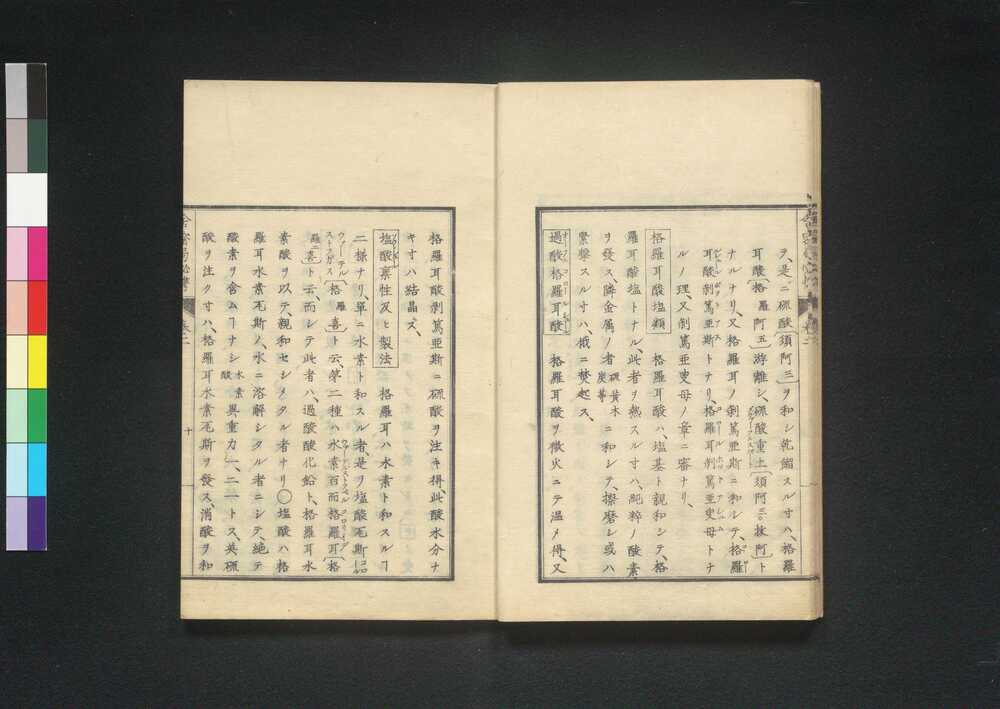 ヲ、是ニ硫酸〔須阿三〕ヲ和シ乾餾スル寸ハ、格羅
耳酸〔格羅阿五〕游離シ、硫酸重土〔須阿三抜阿〕ト
ナルナリ、又格羅耳ノ剥篤亜斯ニ和シテ、格羅
耳酸剥篤亜斯トナリ、格羅耳剥篤亜叟母トナ
ルノ理、又剥篤亜叟母ノ章ニ審ナリ、
格羅耳酸塩類 格羅耳酸ハ、塩基ト親和シテ、格
羅耳酸塩トナル、此者ヲ熱スル寸ハ、純粋ノ酸素
ヲ發ス隣金属ノ者硫黄木炭等ニ和シテ、擦磨シ或ハ
緊撃スル寸ハ、俄ニ焚起ス、
過酸格羅耳酸 格羅耳酸ヲ微火ニテ温メ得、又
格羅耳酸剥篤亜斯ニ硫酸ヲ注キ得、此酸水分ナ
キ寸ハ結晶ズ、
塩酸稟性及ヒ製法 格羅耳ハ水素ト和スルヿ
二様ナリ、單ニ水素ト和スル者、是ヲ塩酸瓦斯
〔格羅喜〕ト云、第二種ハ水素百而格羅耳〔格
羅二喜〕ト云、而シテ此者ハ、過酸酸化鉛ト、格羅耳水
素酸ヲ以テ、親和セシメタル者ナリ○塩酸ハ格
羅耳水素瓦斯ノ、水ニ溶解シタル者ニシテ、絶テ
酸素ヲ含ムヿナシ水素酸異重力一、二一トス、英硫
酸ヲ注ク寸ハ、格羅耳水素瓦斯ヲ發ス、消酸ヲ和
十